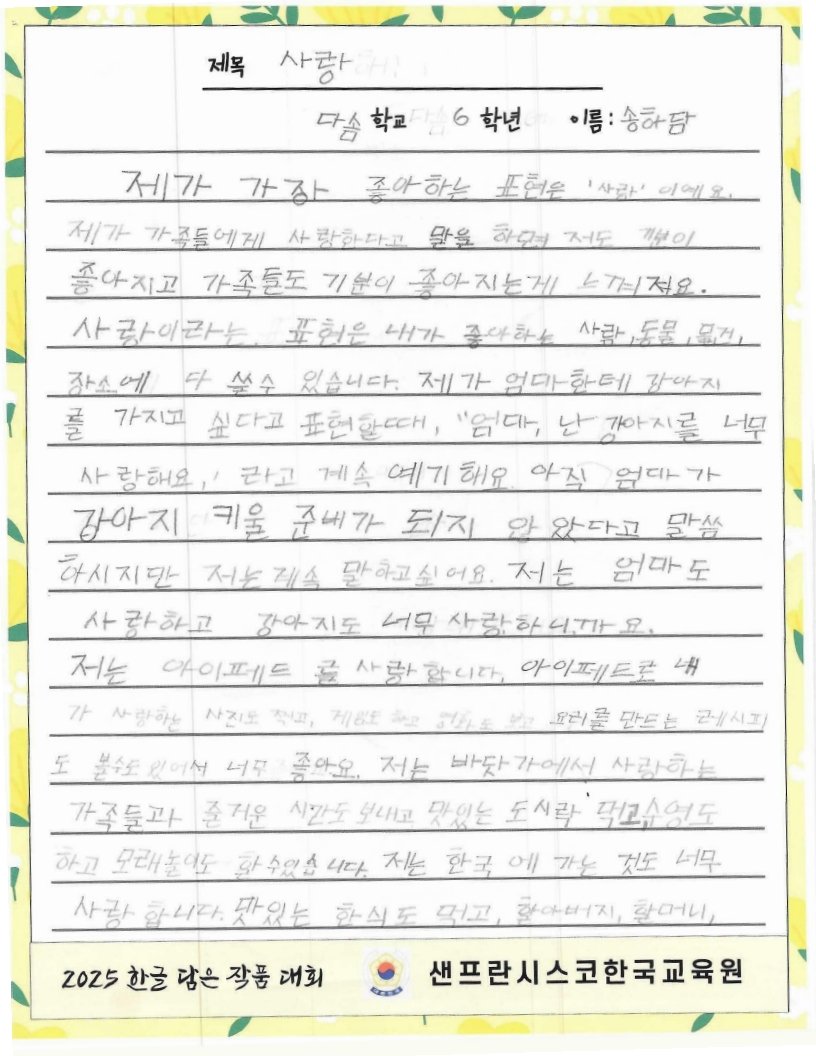 제목 사랑
다솜 학교 6 학년 이름: 송하담
제가 가장 좋아하는 표현은 '사랑' 이예요.
제가 가족들에게 사랑한다고 말을 하면 저도 기분이
좋아지고 가족들도 기분이 좋아지는게 느껴져요.
사랑이라는 표현은 내가 좋아하는 사람, 동물, 물건,
장소에 다 쓸수 있습니다. 제가 엄마한테 강아지
를 가지고 싶다고 표현할때, "엄마, 난 강아지를 너무
사랑해요," 라고 계속 예기해요. 아직 엄마가
강아지 키울 준비가 되지 않았다고 말씀
하시지만 저는 계속 말하고싶어요. 저는 엄마도
사랑하고 강아지도 너무 사랑하니까요.
저는 아이패드를 사랑합니다. 아이패드로 내
가 사랑하는 사진도 찍고, 게임도 하고 영화도 보고 요리를 만드는 레시피
도 볼수도 있어서 너무 좋아요. 저는 바닷가에서 사랑하는
가족들과 즐거운 시간도 보내고 맛있는 도시락 먹고, 수영도
하고 모래놀이도 할수있습니다. 저는 한국에 가는 것도 너무
사랑합니다. 맛있는 한식도 먹고, 할아버지, 할머니,
2025 한글 담은 작품 대회
샌프란시스코한국교육원